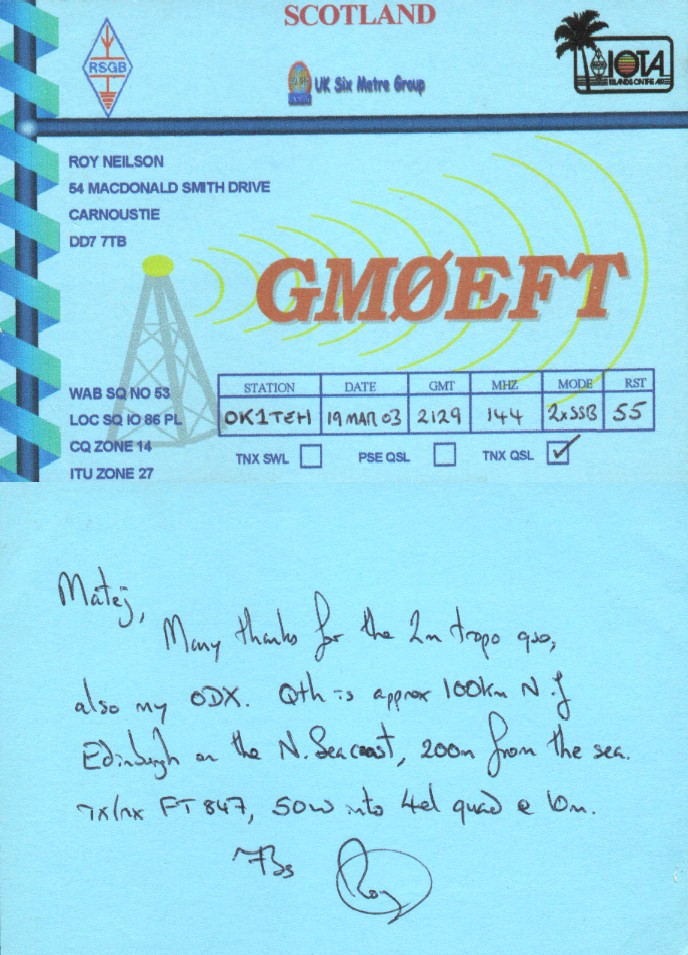 SCOTLAND
RSGB
UK Six Metre Group
IOTA
ISLANDS ON THE AIR
ROY NEILSON
54 MACDONALD SMITH DRIVE
CARNOUSTIE
DD7 7TB
GMØEFT
WAB SQ NO 53
LOC SQ IO 86 PL
CQ ZONE 14
ITU ZONE 27
STATION DATE GMT MHZ MODE RST
OK1TEH 19 MAR 03 2129 144 2xSSB 55
TNX SWL PSE QSL TNX QSL ✓
Matej,
Many thanks for the 2m tropo qso,
also my ODX. Qth is approx 100km N of
Edinburgh on the N. Sea coast, 200m from the sea.
Tx/rx FT 847, 50w into 4el quad @ 10m.
73s Roy